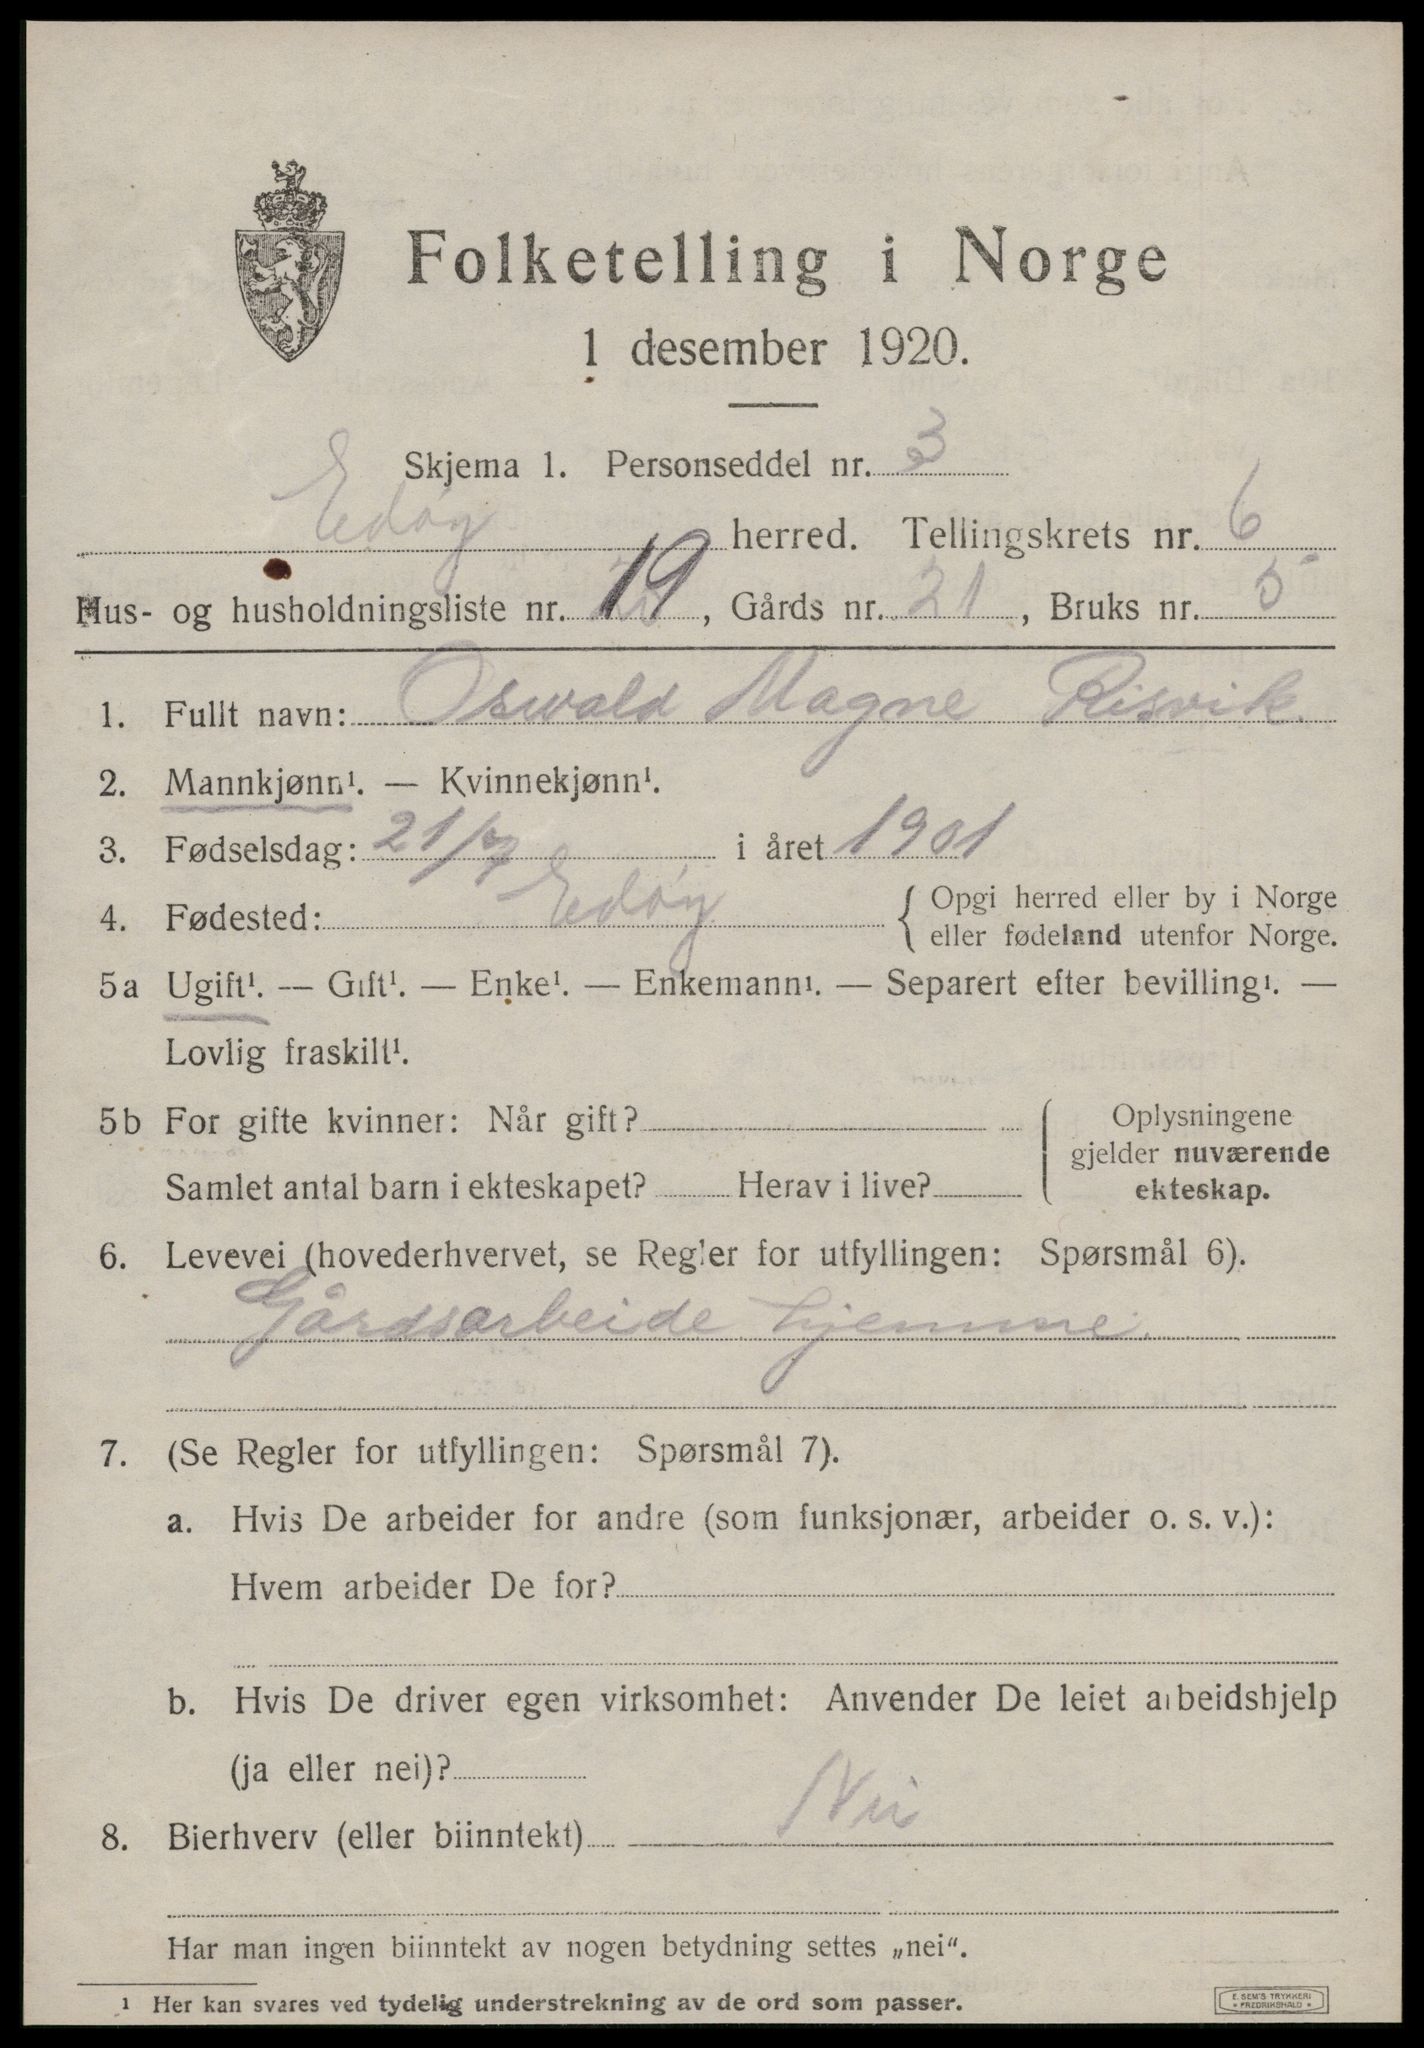 Folketelling i Norge
1 desember 1920.
Skjema 1. Personseddel nr. 3
Edøy herred. Tellingskrets nr. 6
Hus- og husholdningsliste nr. 19, Gårds nr. 21, Bruks nr. 5
1. Fullt navn: Oswald Magne Risvik.
2. Mannkjønn¹. — Kvinnekjønn¹.
3. Fødselsdag: 21/7 i året 1901
4. Fødested: Edøy { Opgi herred eller by i Norge
eller fødeland utenfor Norge.
5a Ugift¹. — Gift¹. — Enke¹. — Enkemann¹. — Separert efter bevilling¹. —
Lovlig fraskilt¹.
5b For gifte kvinner: Når gift? { Oplysningene
gjelder nuværende
Samlet antal barn i ekteskapet? Herav i live? ekteskap.
6. Levevei (hovederhvervet, se Regler for utfyllingen: Spørsmål 6).
Gårdsarbeide hjemme.
7. (Se Regler for utfyllingen: Spørsmål 7).
a. Hvis De arbeider for andre (som funksjonær, arbeider o. s. v.):
Hvem arbeider De for?
b. Hvis De driver egen virksomhet: Anvender De leiet arbeidshjelp
(ja eller nei)?
8. Bierhverv (eller biinntekt) Nei
Har man ingen biinntekt av nogen betydning settes „nei".
¹ Her kan svares ved tydelig understrekning av de ord som passer.
E. SEM'S TRYKKERI
* FREDRIKSHALD *